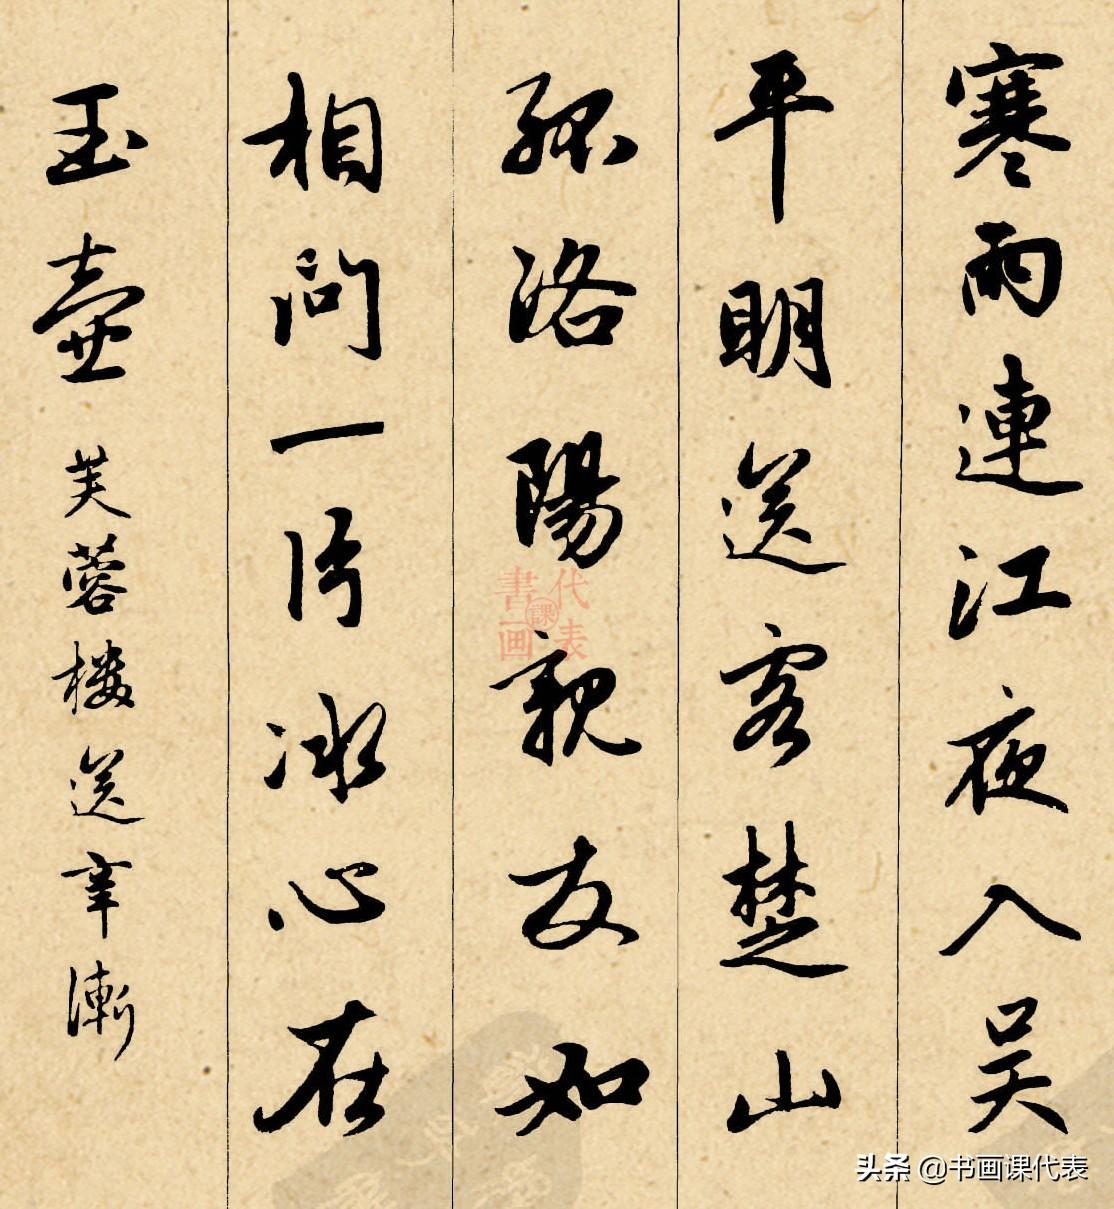 寒雨連江夜入吴
平明送客楚山
孤洛陽親友如
相问一片冰心在
玉壺 芙蓉楼送辛漸
書画課代表
头条 @书画课代表